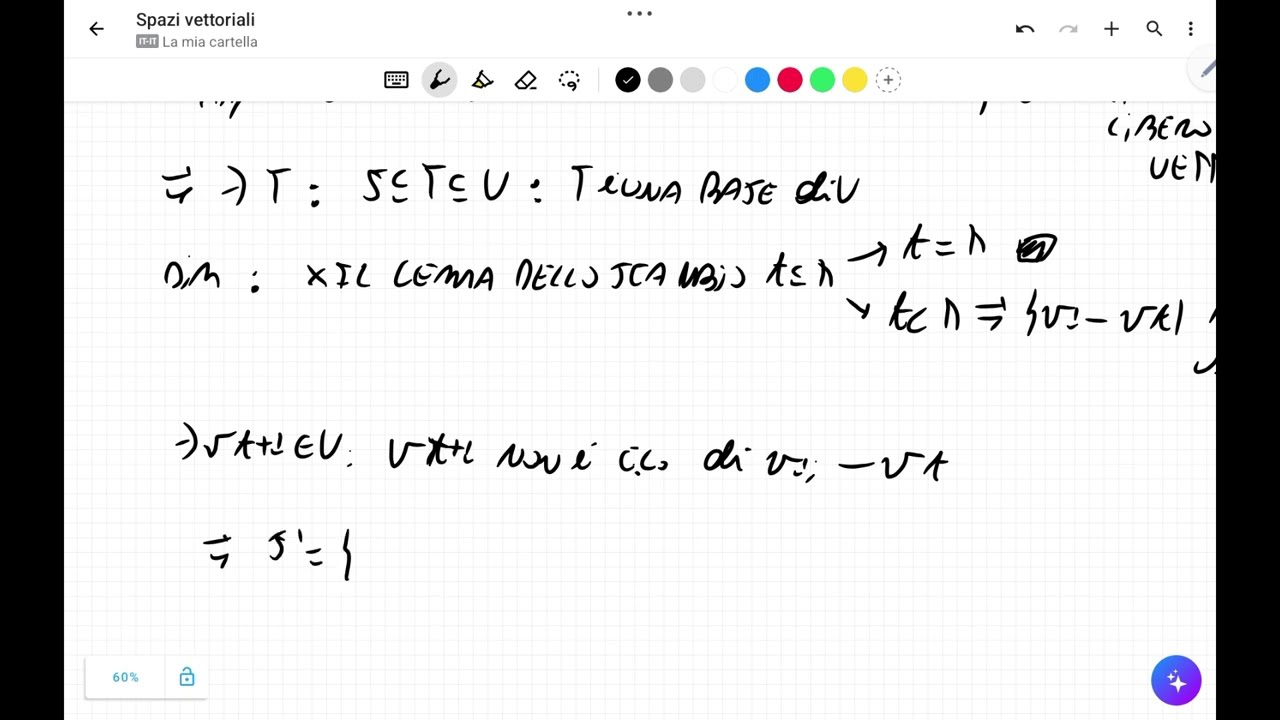 Spazi vettoriali
IT-IT La mia cartella
LIBERO
VETT
⇒ ∃ T : S ⊆ T ⊆ V : T è UNA BASE di V
Dim : X IL LEMMA DELLO SCAMBIO t ≤ n → t = n
↘ t < n ⇒ {v1 - vt}
∃ vt+1 ∈ V : vt+1 NON è C.L. di v1, - vt
⇒ S' = {
60%